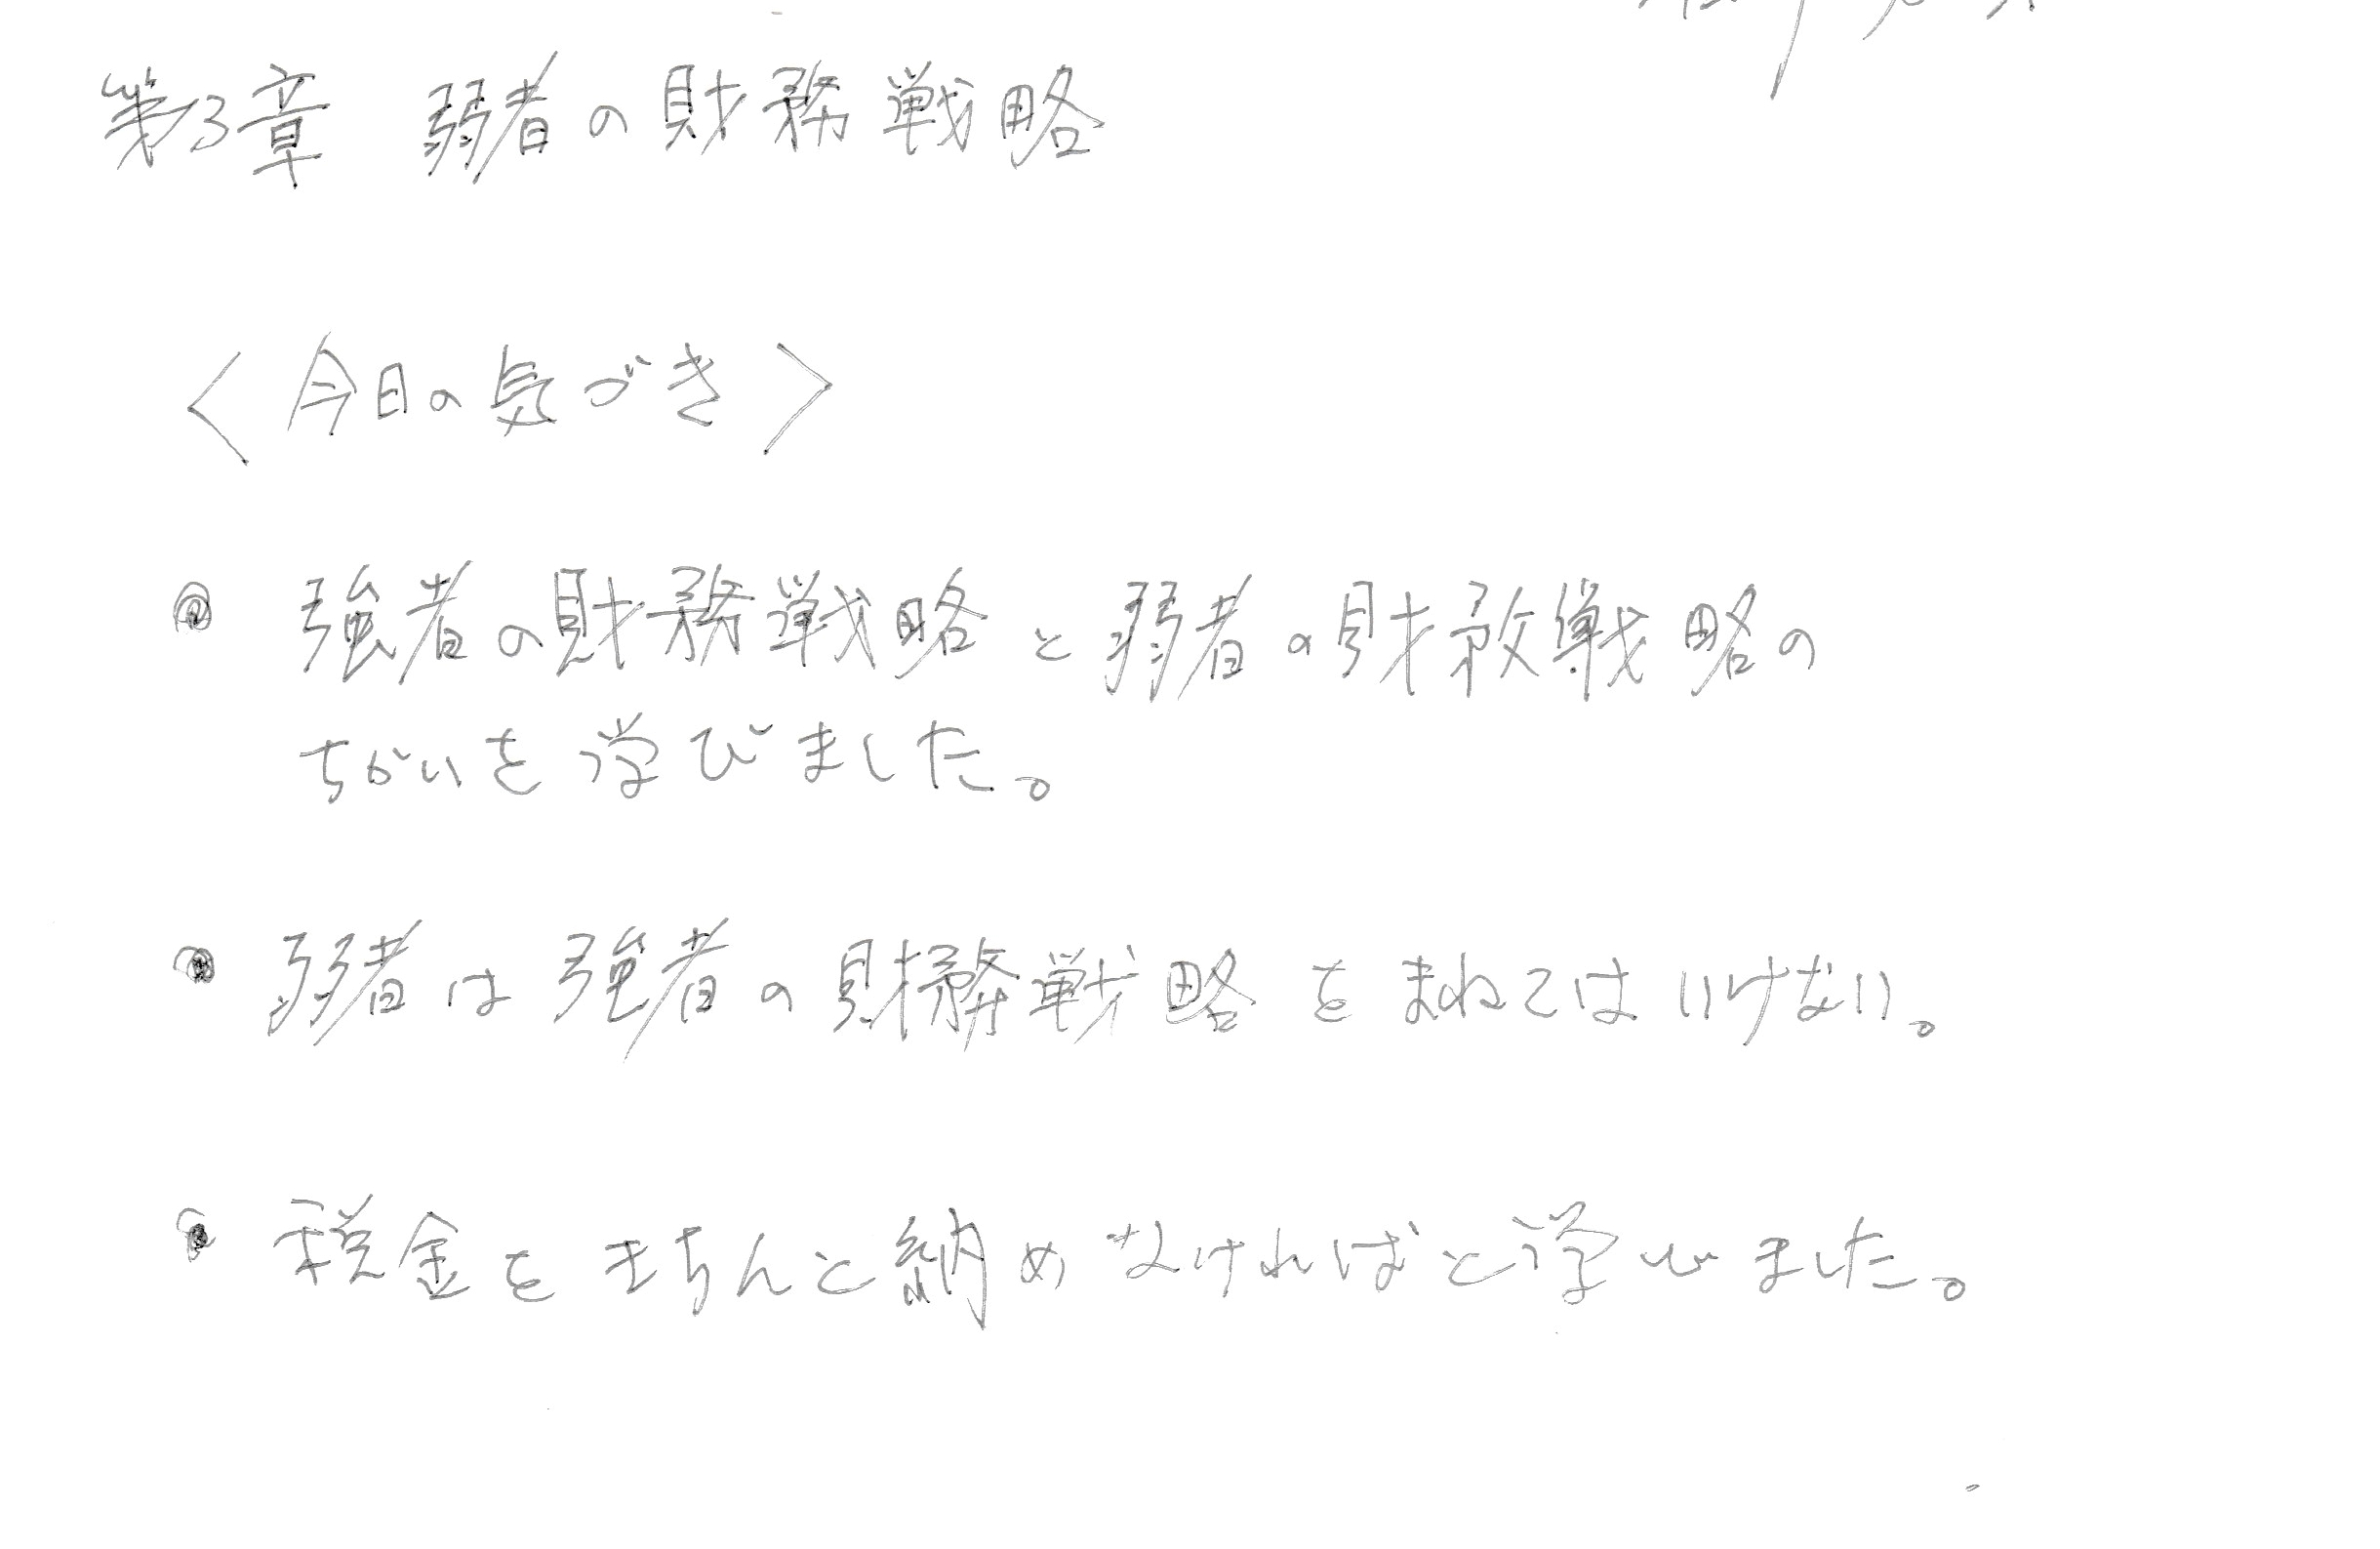 第3章 弱者の財務戦略
<今日の気づき>
● 強者の財務戦略と弱者の財務戦略の
ちがいを学びました。
● 弱者は強者の財務戦略をまねてはいけない。
● 税金をきちんと納めなければと学びました。